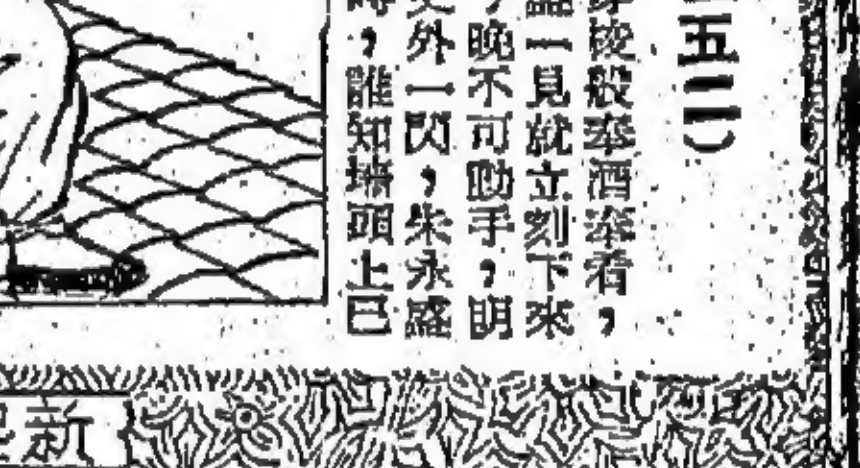 五二）
穿梭般奉酒奉看，
盛一見就立刻下來
，晚不可動手，明
更外一閃，朱永盛
時，誰知墻頭上已
新